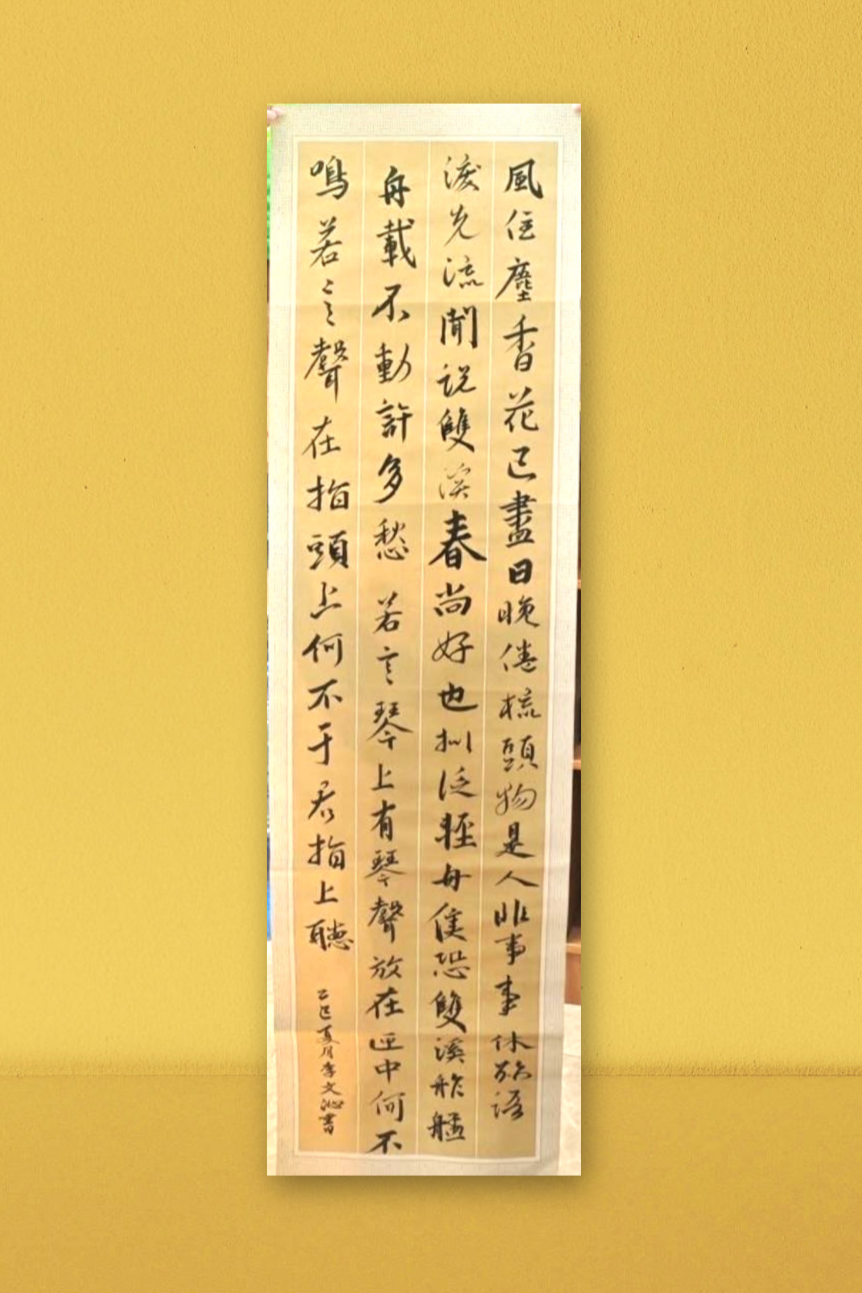 風住塵香花已盡日晚倦梳頭物是人非事事休欲語
淚先流聞說雙溪春尚好也拟泛輕舟僅恐雙溪舴艋
舟載不動許多愁 若言琴上有琴聲放在匣中何不
鳴若言聲在指頭上何不于君指上聽
乙巳夏月李文沁書